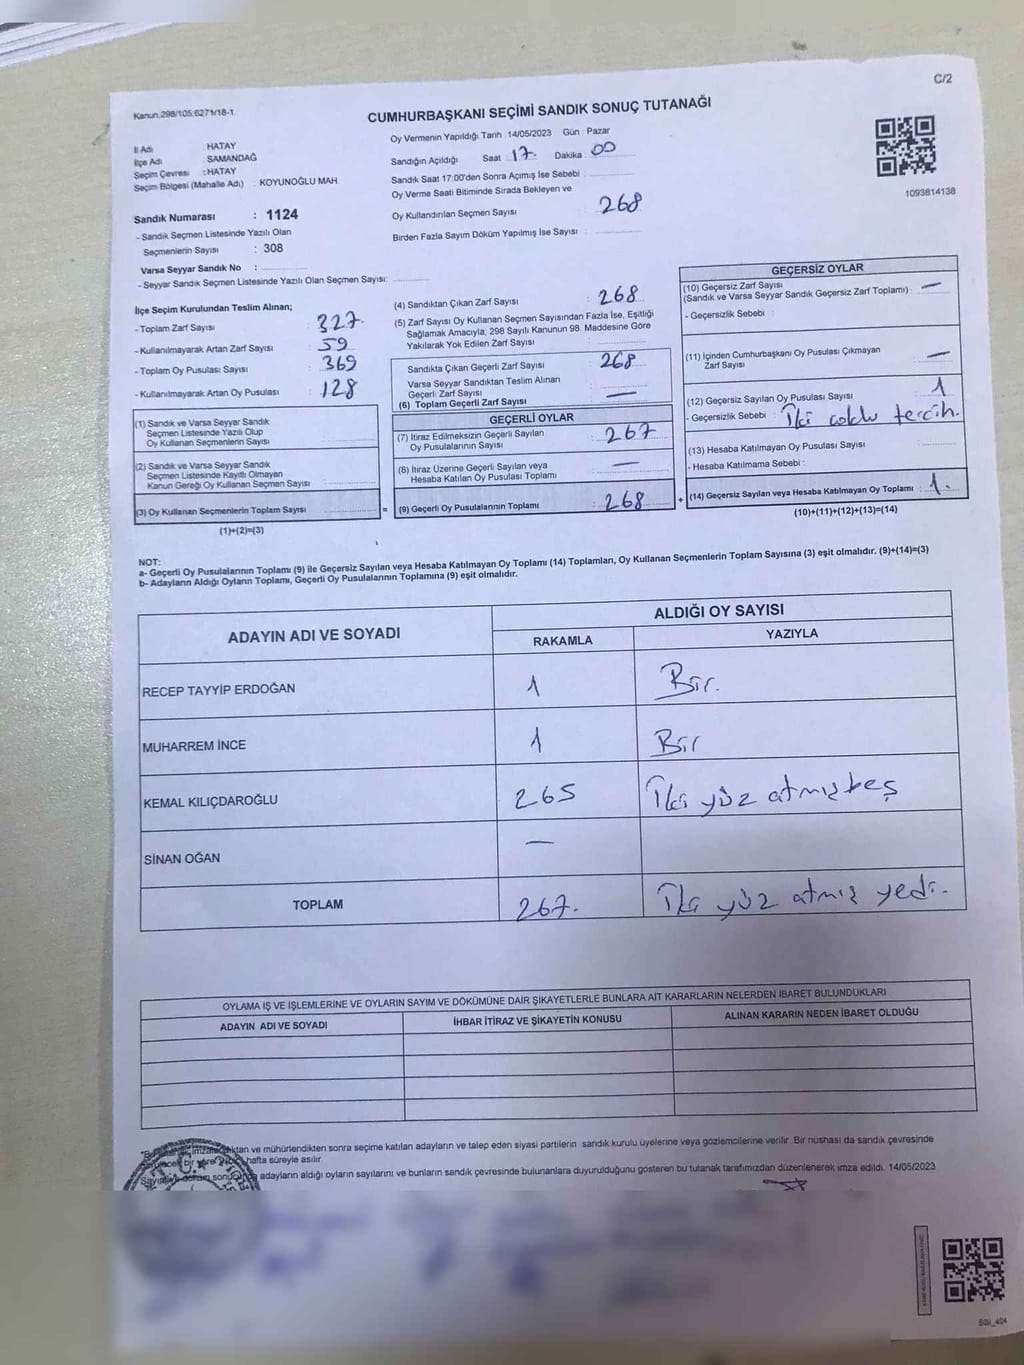 C/2
Kanun:298/105;6271/18-1
CUMHURBAŞKANI SEÇİMİ SANDIK SONUÇ TUTANAĞI
İl Adı : HATAY
İlçe Adı : SAMANDAĞ
Seçim Çevresi : HATAY
Seçim Bölgesi (Mahalle Adı) : KOYUNOĞLU MAH.
Sandık Numarası : 1124
- Sandık Seçmen Listesinde Yazılı Olan
Seçmenlerin Sayısı : 308
Varsa Seyyar Sandık No :
- Seyyar Sandık Seçmen Listesinde Yazılı Olan Seçmen Sayısı:
Oy Vermenin Yapıldığı Tarih : 14/05/2023 Gün : Pazar
Sandığın Açıldığı Saat : 17 Dakika : 00
Sandık Saat 17:00'den Sonra Açımış İse Sebebi :
Oy Verme Saati Bitiminde Sırada Bekleyen ve
Oy Kullandırılan Seçmen Sayısı : 268
Birden Fazla Sayım Döküm Yapılmış İse Sayısı :
1093814138
İlçe Seçim Kurulundan Teslim Alınan;
- Toplam Zarf Sayısı : 327
- Kullanılmayarak Artan Zarf Sayısı : 59
- Toplam Oy Pusulası Sayısı : 369
- Kullanılmayarak Artan Oy Pusulası : 128
(1) Sandık ve Varsa Seyyar Sandık
Seçmen Listesinde Yazılı Olup
Oy Kullanan Seçmenlerin Sayısı :
(2) Sandık ve Varsa Seyyar Sandık
Seçmen Listesinde Kayıtlı Olmayan
Kanun Gereği Oy Kullanan Seçmen Sayısı :
(3) Oy Kullanan Seçmenlerin Toplam Sayısı :
(1)+(2)=(3)
(4) Sandıktan Çıkan Zarf Sayısı : 268
(5) Zarf Sayısı Oy Kullanan Seçmen Sayısından Fazla İse, Eşitliği
Sağlamak Amacıyla; 298 Sayılı Kanunun 98. Maddesine Göre
Yakılarak Yok Edilen Zarf Sayısı :
Sandıkta Çıkan Geçerli Zarf Sayısı : 268
Varsa Seyyar Sandıktan Teslim Alınan
Geçerli Zarf Sayısı : —
(6) Toplam Geçerli Zarf Sayısı :
GEÇERLİ OYLAR
(7) İtiraz Edilmeksizin Geçerli Sayılan
Oy Pusulalarının Sayısı : 267
(8) İtiraz Üzerine Geçerli Sayılan veya
Hesaba Katılan Oy Pusulası Toplamı : —
= (9) Geçerli Oy Pusulalarının Toplamı : 268 +
GEÇERSİZ OYLAR
(10) Geçersiz Zarf Sayısı
(Sandık ve Varsa Seyyar Sandık Geçersiz Zarf Toplamı) : —
- Geçersizlik Sebebi :
(11) İçinden Cumhurbaşkanı Oy Pusulası Çıkmayan
Zarf Sayısı : —
(12) Geçersiz Sayılan Oy Pusulası Sayısı : 1
- Geçersizlik Sebebi : tercih.
(13) Hesaba Katılmayan Oy Pusulası Sayısı :
- Hesaba Katılmama Sebebi :
(14) Geçersiz Sayılan veya Hesaba Katılmayan Oy Toplamı : 1.
(10)+(11)+(12)+(13)=(14)
NOT:
a- Geçerli Oy Pusulalarının Toplamı (9) ile Geçersiz Sayılan veya Hesaba Katılmayan Oy Toplamı (14) Toplamları, Oy Kullanan Seçmenlerin Toplam Sayısına (3) eşit olmalıdır. (9)+(14)=(3)
b- Adayların Aldığı Oyların Toplamı, Geçerli Oy Pusulalarının Toplamına (9) eşit olmalıdır.
ADAYIN ADI VE SOYADI
ALDIĞI OY SAYISI
RAKAMLA YAZIYLA
RECEP TAYYİP ERDOĞAN 1 Bir.
MUHARREM İNCE 1 Bir
KEMAL KILIÇDAROĞLU 265 İki yüz atmış beş
SİNAN OĞAN —
TOPLAM 267. İki yüz atmış yedi.
OYLAMA İŞ VE İŞLEMLERİNE VE OYLARIN SAYIM VE DÖKÜMÜNE DAİR ŞİKAYETLERLE BUNLARA AİT KARARLARIN NELERDEN İBARET BULUNDUKLARI
ADAYIN ADI VE SOYADI İHBAR İTİRAZ VE ŞİKAYETİN KONUSU ALINAN KARARIN NEDEN İBARET OLDUĞU
ve mühürlendikten sonra seçime katılan adayların ve talep eden siyasi partilerin sandık kurulu üyelerine veya gözlemcilerine verilir. Bir nüshası da sandık çevresinde
hafta süreyle asılır.
adayların aldığı oyların sayılarını ve bunların sandık çevresinde bulunanlara duyurulduğunu gösteren bu tutanak tarafımızdan düzenlenerek imza edildi. 14/05/2023